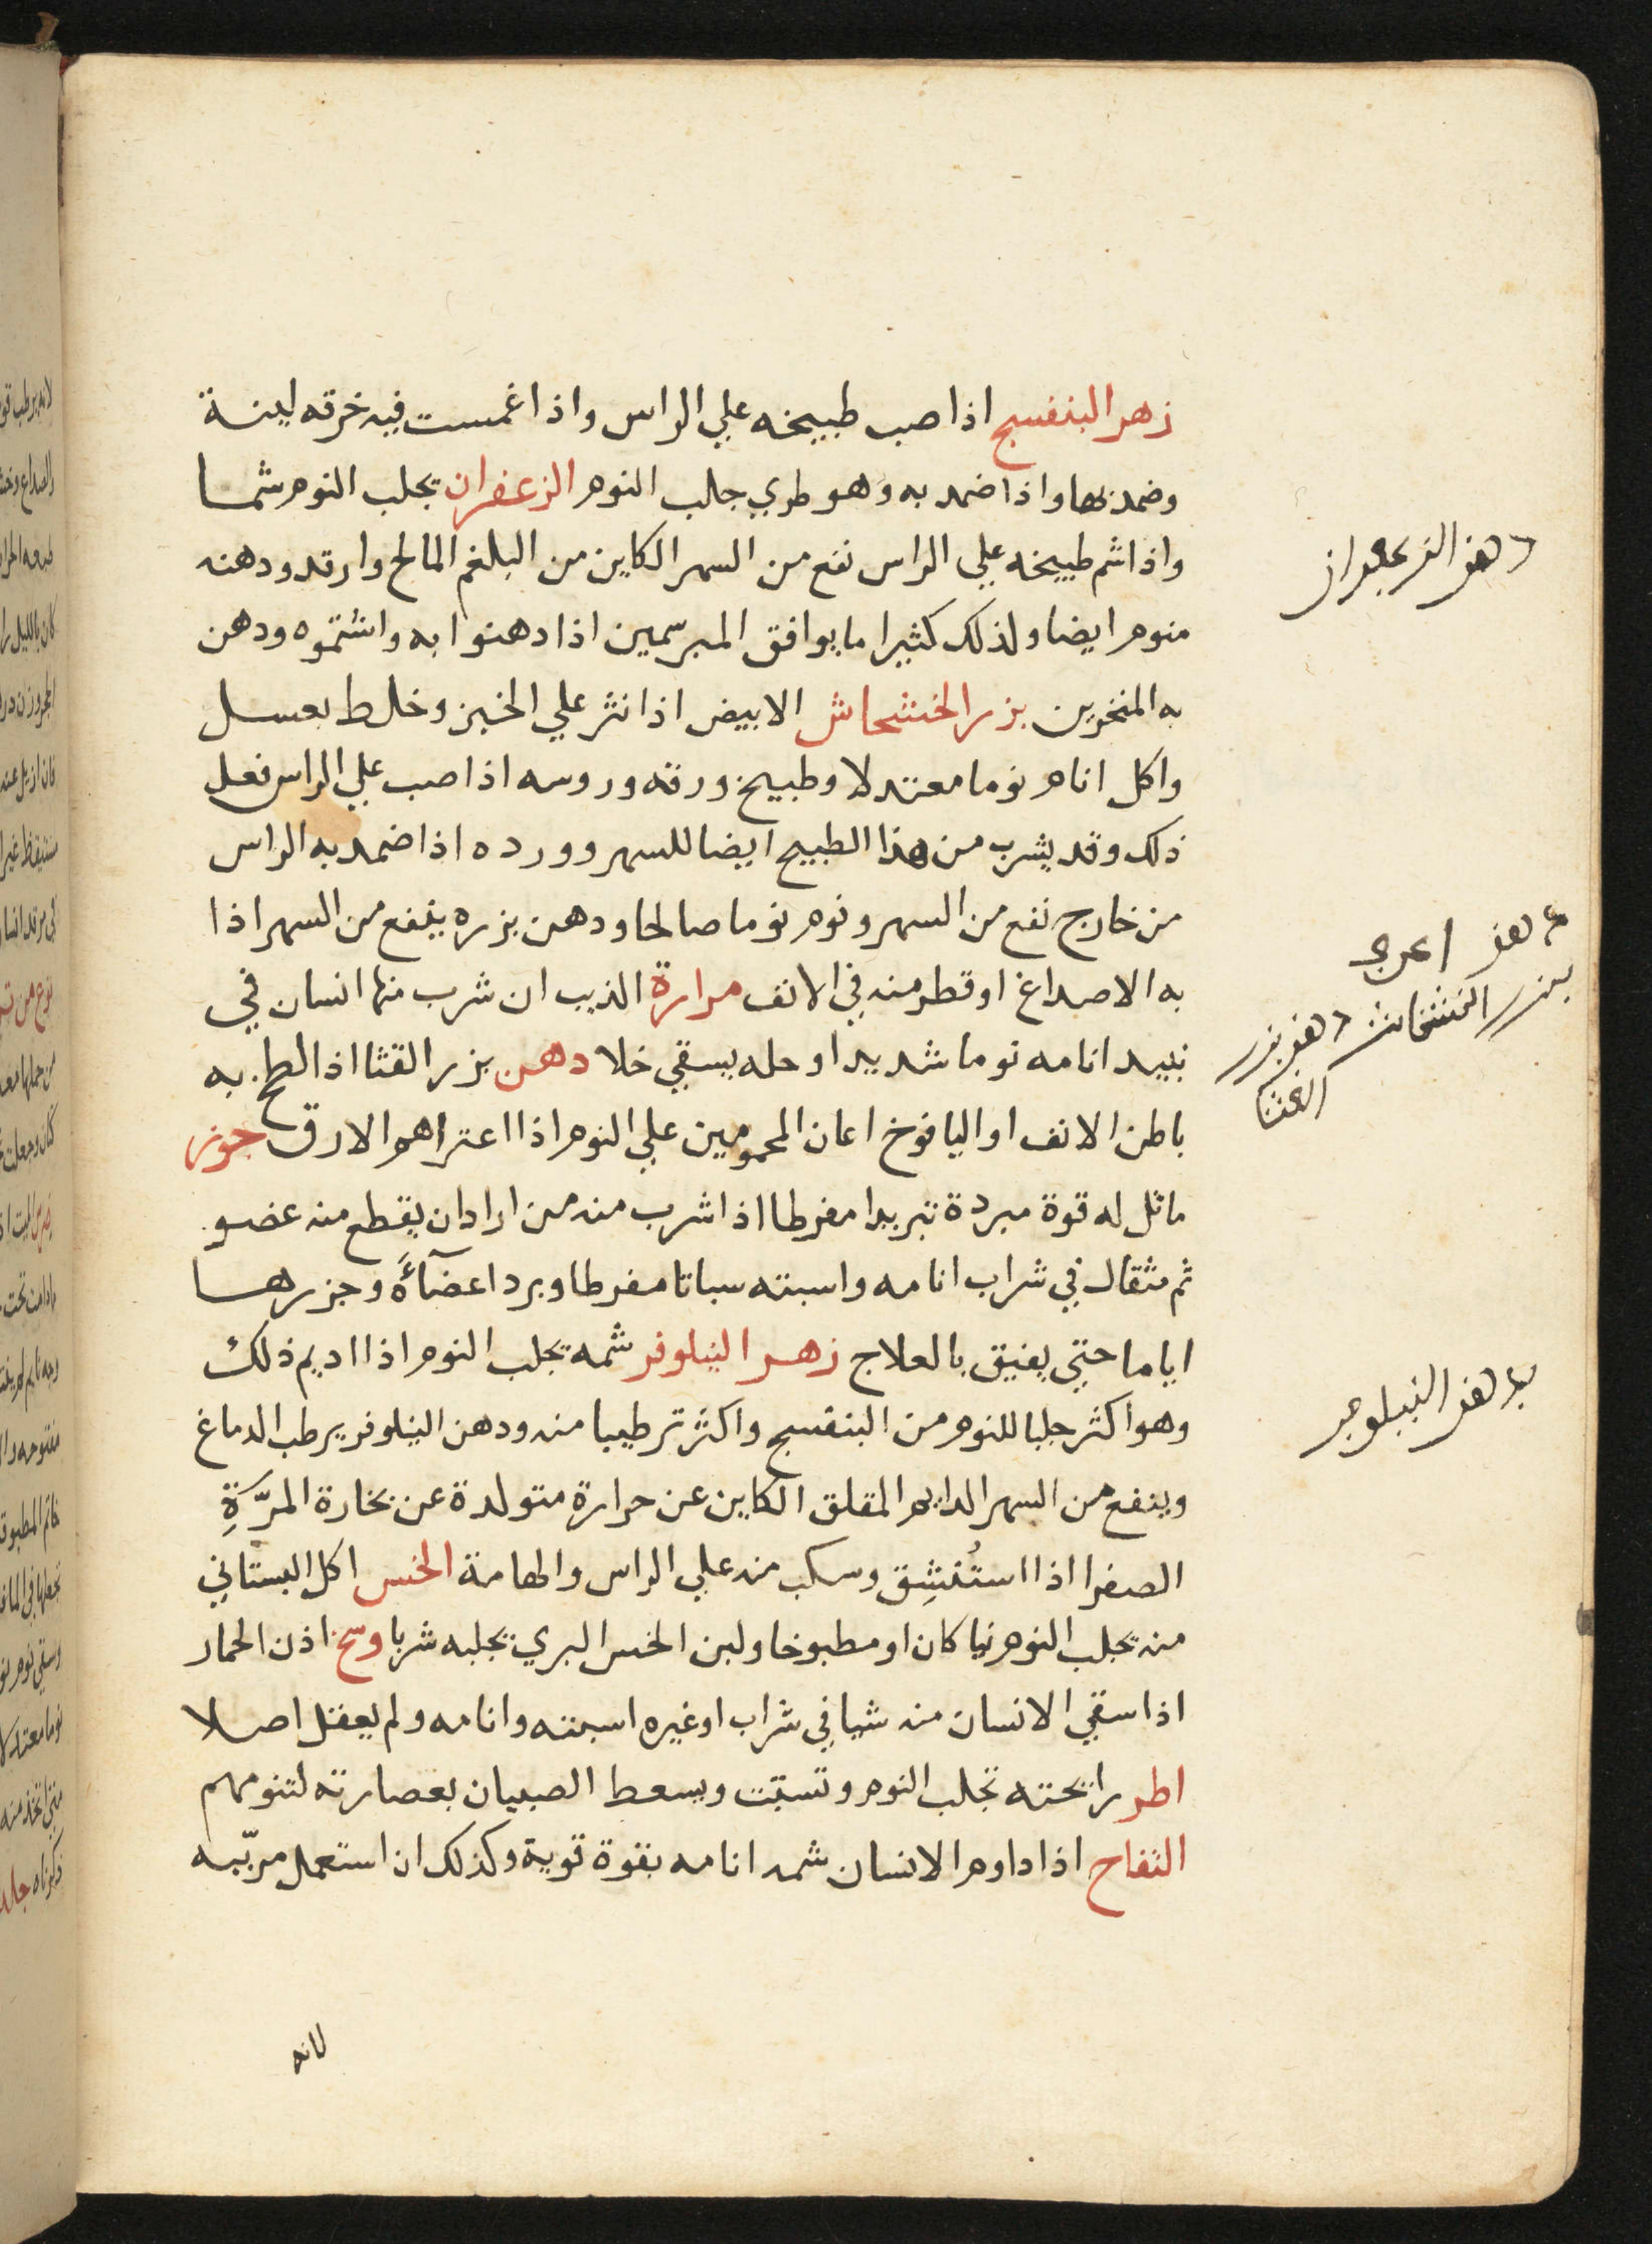 زهر البنفسج اذا صب طبيخه علي الراس واذا غمست فيه خرقه لينة
وضمد بها واذا ضمد به وهو طري جلب النوم الزعفران يجلب النوم شما
واذا شم طبيخه علي الراس نفع من السهر الكاين من البلغم المالح وارقد ودهنه
منوم ايضا ولذلك كثيرا ما يوافق المبرسمين اذا دهنوا به واشتموه ودهن
به المنخرين بزر الخشخاش الابيض اذا نثر علي الخبز وخلط بعسل
واكل انام نوما معتدلا وطبيخ ورقه وروسه اذا صب علي الراس فعل
ذلك وقد يشرب من هذا الطبيخ ايضا للسهر وورده اذا ضمد به الراس
من خارج نفع من السهر ونوم نوما صالحا ودهن بزره ينفع من السهر اذا
به الاصداغ او قطر منه في الانف مرارة الذيب ان شرب منها انسان في
نبيد انامه نوما شديدا وحله يسقي خلا دهن بزر القثا اذا لطخ به
باطن الانف او اليافوخ اعان المحمومين علي النوم اذا اعتراهم الارق جوز
ماثل له قوة مبردة تبريدا مفرطا اذا شرب منه من اراد ان يقطع منه عضو
ثم مثقال في شراب انامه واسبته سباتا مفرطا وبرد اعضآءً وجزرها
اياما حتي يفيق بالعلاج زهر النيلوفر شمه يجلب النوم اذا اديم ذلك
وهو اكثر جلبا للنوم من البنفسج واكثر ترطيبا منه ودهن النيلوفر يرطب الدماغ
وينفع من السهر الدايم المقلق الكاين عن حرارة متولدة عن بخارة المرّةِ
الصفرا اذا استُنشِق وسكب منه علي الراس والهامة الخس اكل البستاني
منه يجلب النوم نيا كان او مطبوخا ولبن الخس البري يجلبه شربا وسخ اذن الحمار
اذا سقي الانسان منه شيا في شراب او غيره اسبته وانامه ولم يعقل اصلا
اطر رايحته تجلب النوم وتسبّت ويسعط الصبيان بعصارته لتنومهم
التفاح اذا داوم الانسان شمه انامه بقوة قوية وكذلك ان استعمل مربّبه
لانه
دهن الزعفران
دهن
بزر الخشخاش دهن بزر
القثا
دهن النيلوفر